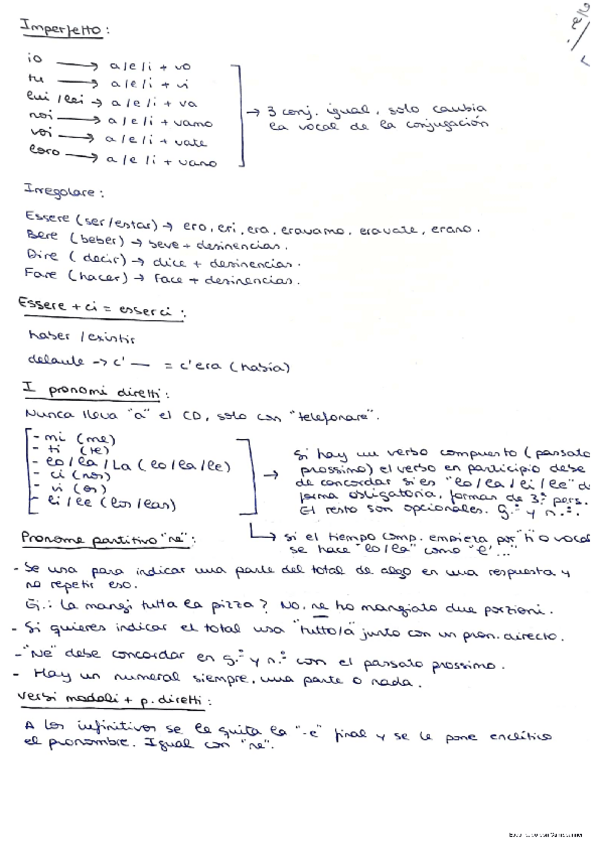 Imperfetto:
io → a/e/i + vo
tu → a/e/i + vi
lui/lei → a/e/i + va
noi → a/e/i + vamo
voi → a/e/i + vate
loro → a/e/i + vano
→ 3 conj. igual, solo cambia
la vocal de la conjugación
Irregolare:
Essere (ser/estar) → ero, eri, era, eravamo, eravate, erano.
Bere (beber) → beve + desinencias.
Dire (decir) → dice + desinencias.
Fare (hacer) → face + desinencias.
Essere + ci = esserci:
haber/existir
delante → c' — = c'era (había)
I pronomi diretti:
Nunca lleva "a" el CD, solo con "telefonare".
- mi (me)
- ti (te)
- lo/la/La (lo/la/le)
- ci (nos)
- vi (os)
- li/le (los/las)
→ Si hay un verbo compuesto (passato
prossimo) el verbo en participio debe
de concordar si es "lo/la/li/le" d
forma obligatoria, formas de 3.ª pers.
El resto son opcionales. g.º y n.º.
→ si el tiempo comp. empieza por "h" o vocal
se hace "lo/la" como "l'..."
Pronome partitivo "ne":
- Se usa para indicar una parte del total de algo en una respuesta y
no repetir eso.
Ej.: La mangi tutta la pizza? No, ne ho mangiato due porzioni.
- Si quieres indicar el total usa "tutto/a" junto con un pron. directo.
- "Ne" debe concordar en g.º y n.º con el passato prossimo.
- Hay un numeral siempre, una parte o nada.
Verbi modali + p. diretti:
A los infinitivos se le quita la "-e" final y se le pone enclítico
el pronombre. Igual con "ne".